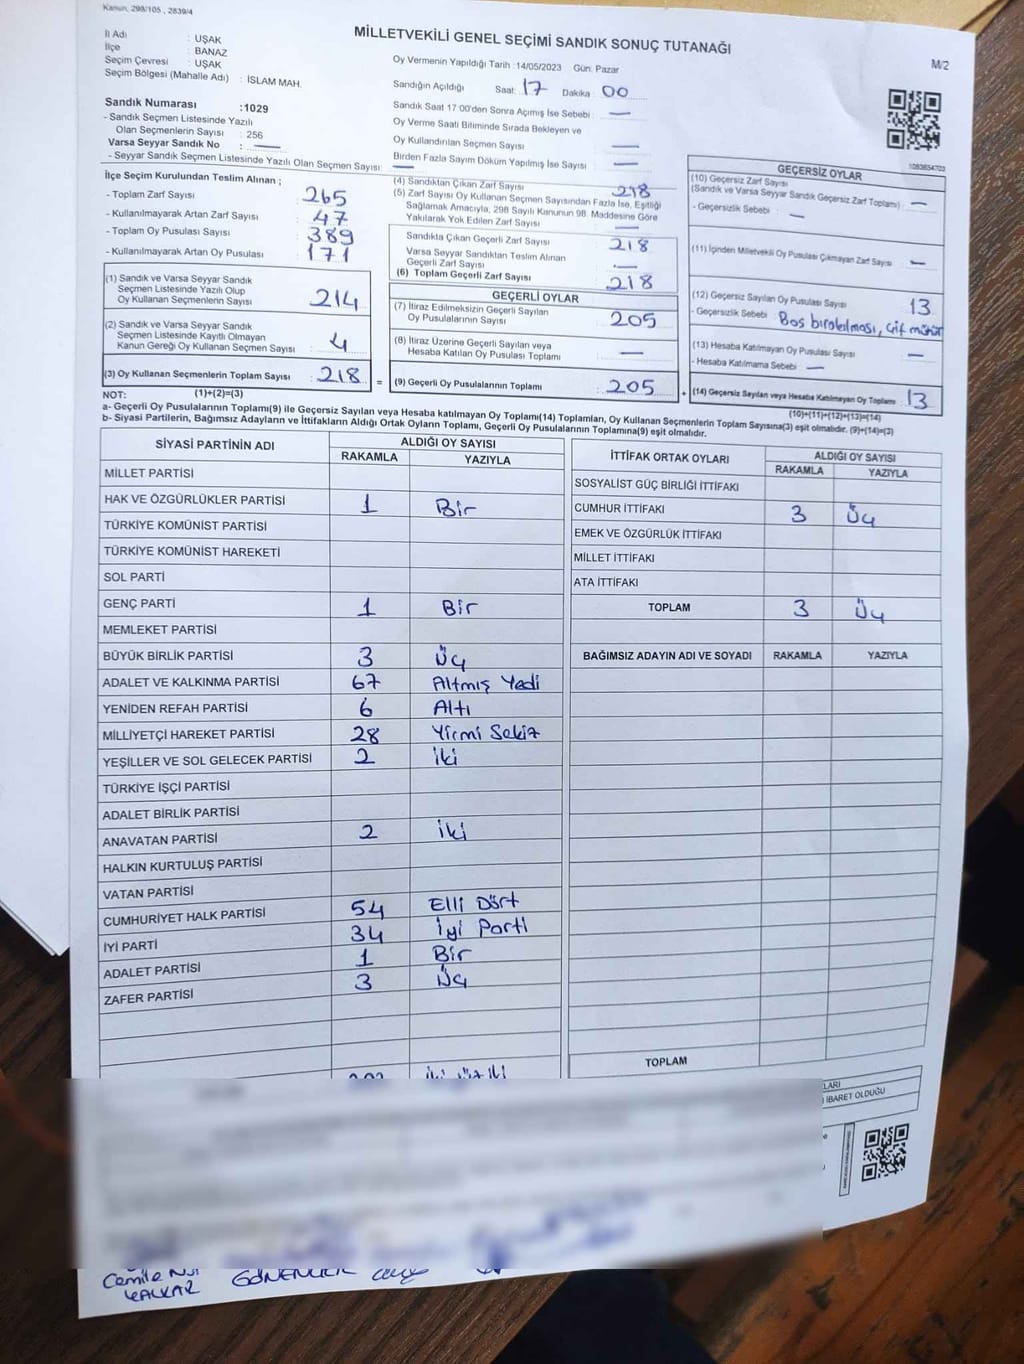 Kanun, 298/105 , 2839/4
MİLLETVEKİLİ GENEL SEÇİMİ SANDIK SONUÇ TUTANAĞI
M/2
İl Adı : UŞAK
İlçe : BANAZ
Seçim Çevresi : UŞAK
Seçim Bölgesi (Mahalle Adı) : İSLAM MAH.
Sandık Numarası :1029
- Sandık Seçmen Listesinde Yazılı
Olan Seçmenlerin Sayısı : 256
Varsa Seyyar Sandık No : —
- Seyyar Sandık Seçmen Listesinde Yazılı Olan Seçmen Sayısı: —
Oy Vermenin Yapıldığı Tarih :14/05/2023 Gün: Pazar
Sandığın Açıldığı Saat: 17 Dakika: 00
Sandık Saat 17:00'den Sonra Açımış İse Sebebi : —
Oy Verme Saati Bitiminde Sırada Bekleyen ve
Oy Kullandırılan Seçmen Sayısı : —
Birden Fazla Sayım Döküm Yapılmış İse Sayısı : —
1083654703
İlçe Seçim Kurulundan Teslim Alınan ;
- Toplam Zarf Sayısı : 265
- Kullanılmayarak Artan Zarf Sayısı : 47
- Toplam Oy Pusulası Sayısı : 389
- Kullanılmayarak Artan Oy Pusulası : 171
(1) Sandık ve Varsa Seyyar Sandık
Seçmen Listesinde Yazılı Olup
Oy Kullanan Seçmenlerin Sayısı : 214
(2) Sandık ve Varsa Seyyar Sandık
Seçmen Listesinde Kayıtlı Olmayan
Kanun Gereği Oy Kullanan Seçmen Sayısı : 4
(3) Oy Kullanan Seçmenlerin Toplam Sayısı : 218 =
(4) Sandıktan Çıkan Zarf Sayısı : 218
(5) Zarf Sayısı Oy Kullanan Seçmen Sayısından Fazla İse, Eşitliği
Sağlamak Amacıyla, 298 Sayılı Kanunun 98. Maddesine Göre
Yakılarak Yok Edilen Zarf Sayısı : —
Sandıkta Çıkan Geçerli Zarf Sayısı : 218
Varsa Seyyar Sandıktan Teslim Alınan
Geçerli Zarf Sayısı : —
(6) Toplam Geçerli Zarf Sayısı : 218
GEÇERLİ OYLAR
(7) İtiraz Edilmeksizin Geçerli Sayılan
Oy Pusulalarının Sayısı : 205
(8) İtiraz Üzerine Geçerli Sayılan veya
Hesaba Katılan Oy Pusulası Toplamı : —
(9) Geçerli Oy Pusulalarının Toplamı : 205 +
GEÇERSİZ OYLAR
(10) Geçersiz Zarf Sayısı
(Sandık ve Varsa Seyyar Sandık Geçersiz Zarf Toplamı) : —
- Geçersizlik Sebebi : —
(11) İçinden Milletvekili Oy Pusulası Çıkmayan Zarf Sayısı : —
(12) Geçersiz Sayılan Oy Pusulası Sayısı : 13
- Geçersizlik Sebebi : Boş bırakılması, çif mühür
(13) Hesaba Katılmayan Oy Pusulası Sayısı : —
- Hesaba Katılmama Sebebi : —
(14) Geçersiz Sayılan veya Hesaba Katılmayan Oy Toplamı : 13
NOT: (1)+(2)=(3) (10)+(11)+(12)+(13)=(14)
a- Geçerli Oy Pusulalarının Toplamı(9) ile Geçersiz Sayılan veya Hesaba katılmayan Oy Toplamı(14) Toplamları, Oy Kullanan Seçmenlerin Toplam Sayısına(3) eşit olmalıdır. (9)+(14)=(3)
b- Siyasi Partilerin, Bağımsız Adayların ve İttifakların Aldığı Ortak Oyların Toplamı, Geçerli Oy Pusulalarının Toplamına(9) eşit olmalıdır.
SİYASİ PARTİNİN ADI ALDIĞI OY SAYISI
RAKAMLA YAZIYLA
MİLLET PARTİSİ
HAK VE ÖZGÜRLÜKLER PARTİSİ 1 Bir
TÜRKİYE KOMÜNİST PARTİSİ
TÜRKİYE KOMÜNİST HAREKETİ
SOL PARTİ
GENÇ PARTİ 1 Bir
MEMLEKET PARTİSİ
BÜYÜK BİRLİK PARTİSİ 3 Üç
ADALET VE KALKINMA PARTİSİ 67 Altmış Yedi
YENİDEN REFAH PARTİSİ 6 Altı
MİLLİYETÇİ HAREKET PARTİSİ 28 Yirmi Sekiz
YEŞİLLER VE SOL GELECEK PARTİSİ 2 İki
TÜRKİYE İŞÇİ PARTİSİ
ADALET BİRLİK PARTİSİ
ANAVATAN PARTİSİ 2 İki
HALKIN KURTULUŞ PARTİSİ
VATAN PARTİSİ
CUMHURİYET HALK PARTİSİ 54 Elli Dört
İYİ PARTİ 34 İyi Parti
ADALET PARTİSİ 1 Bir
ZAFER PARTİSİ 3 Üç
İTTİFAK ORTAK OYLARI ALDIĞI OY SAYISI
RAKAMLA YAZIYLA
SOSYALİST GÜÇ BİRLİĞİ İTTİFAKI
CUMHUR İTTİFAKI 3 Üç
EMEK VE ÖZGÜRLÜK İTTİFAKI
MİLLET İTTİFAKI
ATA İTTİFAKI
TOPLAM 3 Üç
BAĞIMSIZ ADAYIN ADI VE SOYADI RAKAMLA YAZIYLA
TOPLAM
LARI
İBARET OLDUĞU
Cemile
KALKAR